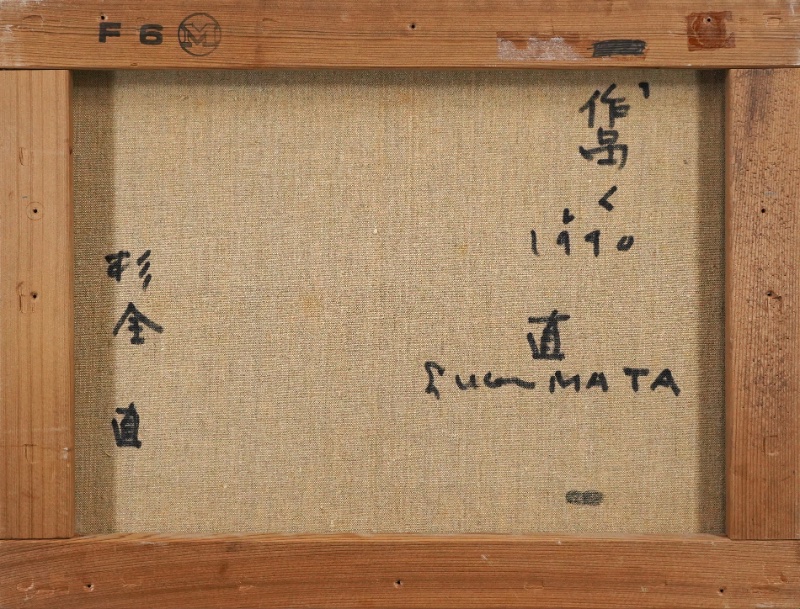 F 6 M
作品
1990
直
Sugi MATA
杉全 直